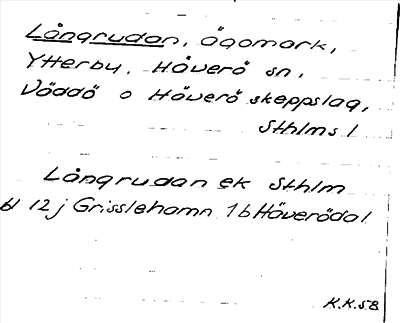 Långrudan, Ägomark,
Ytterby, Häverö sn,
Väddö o Häverö skeppslag,
Sthlms l
Långrudan ek Sthlm
bl 12 j Grisslehamn 1b Häverödal
K.K.58